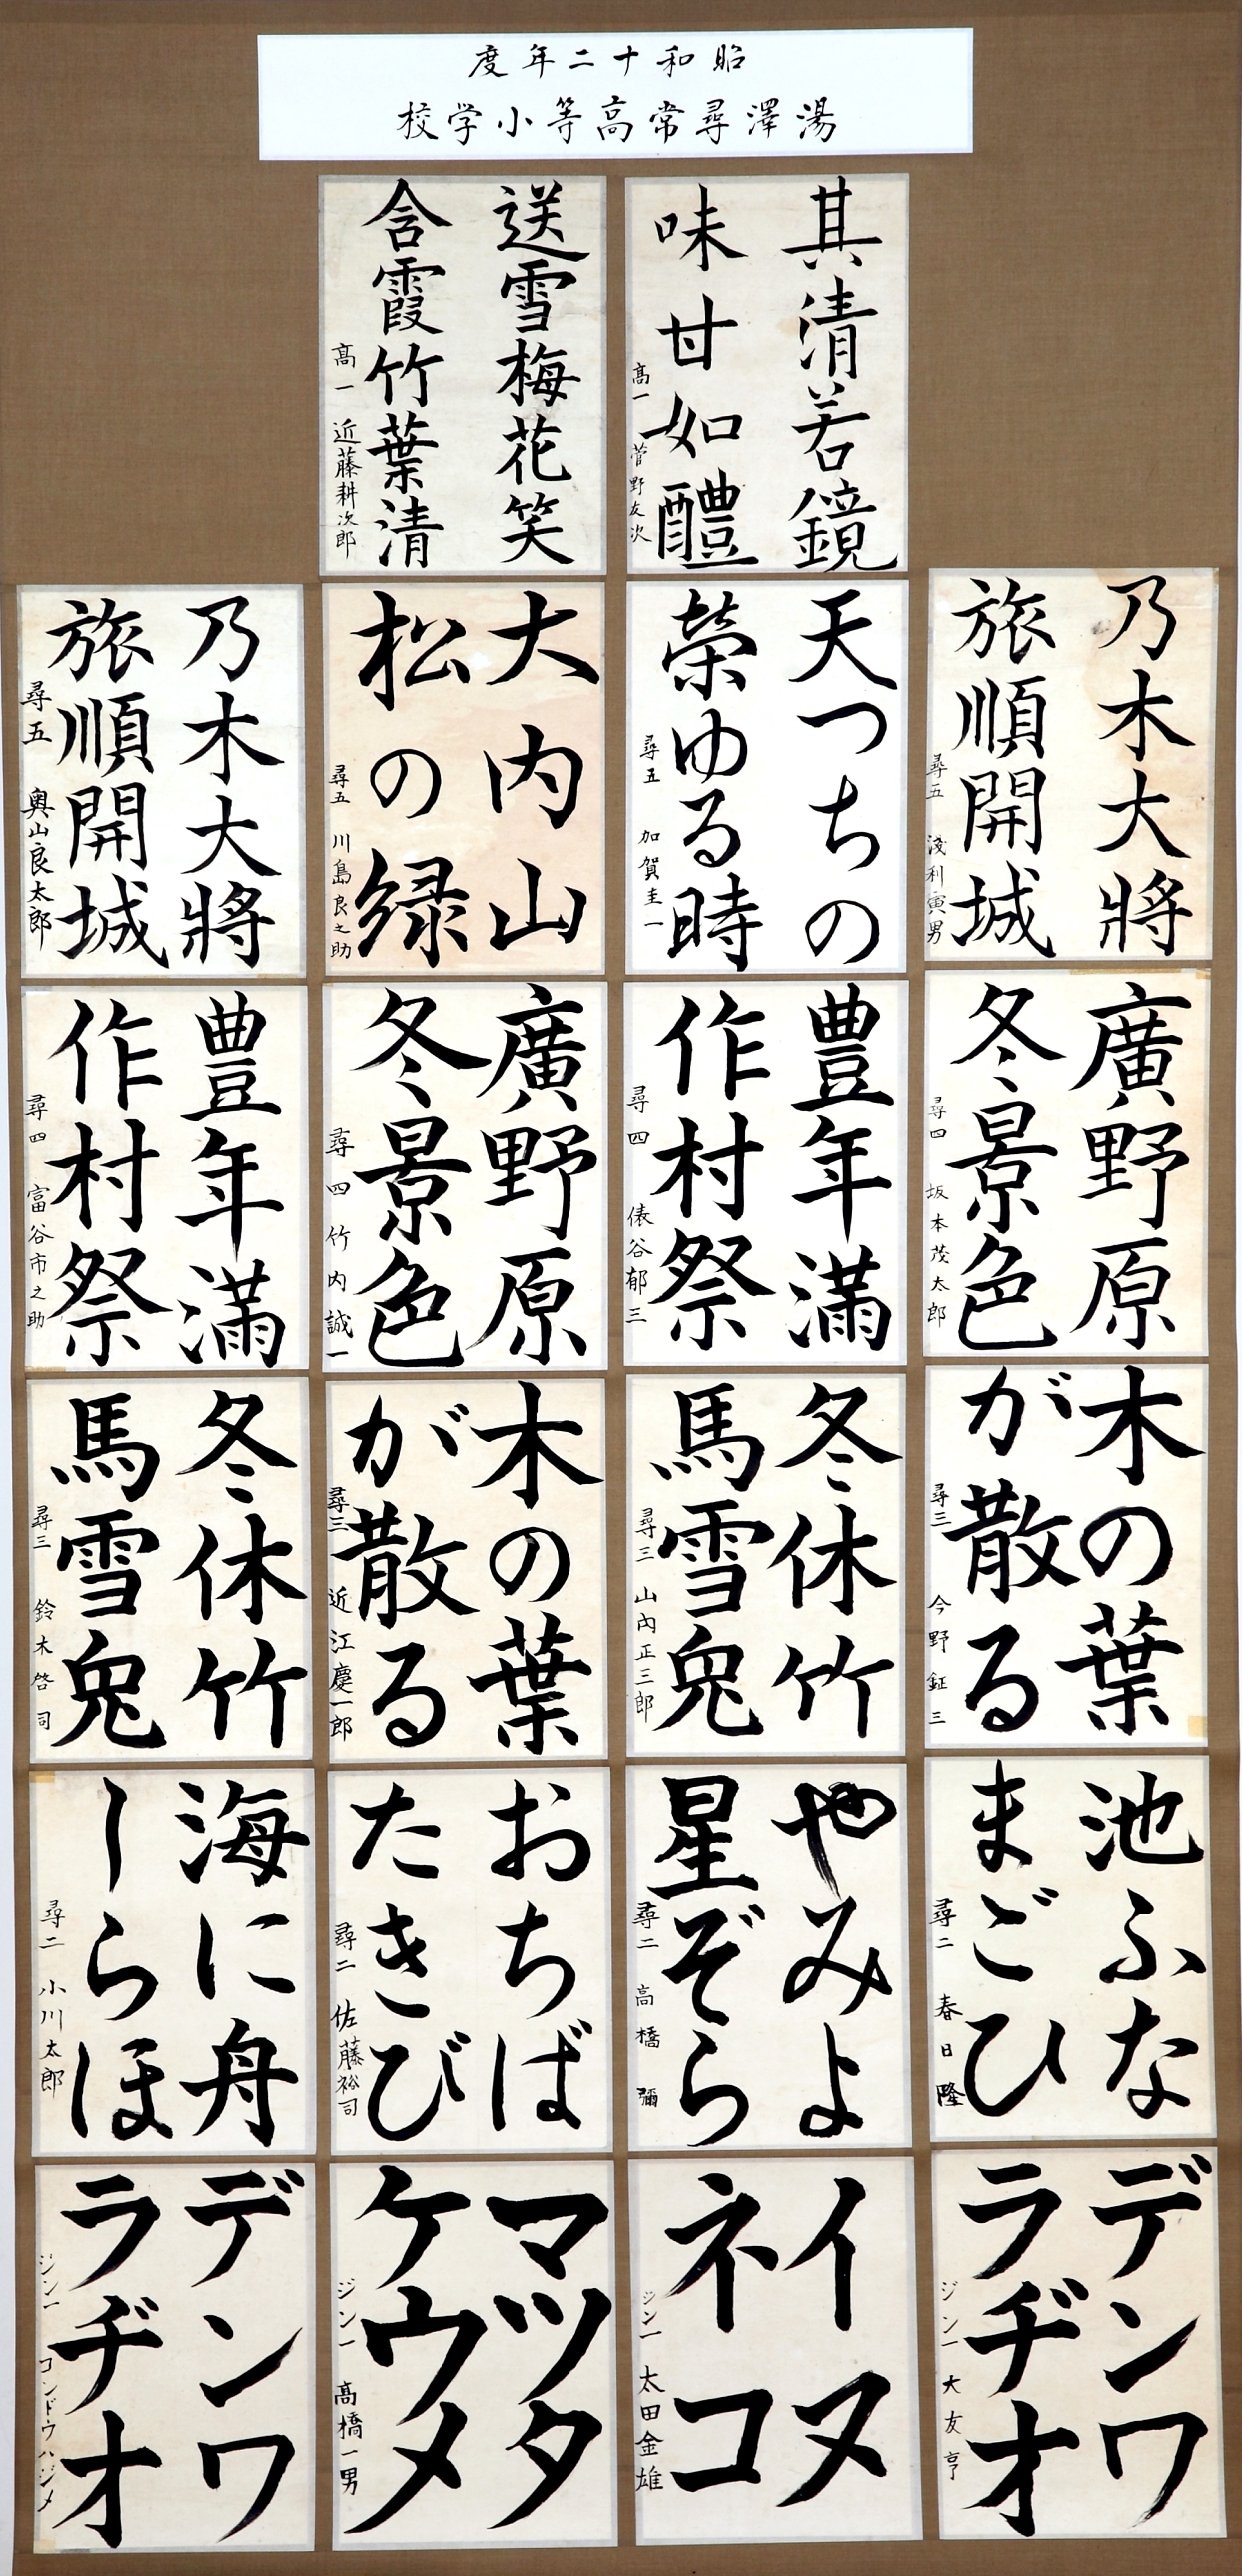 昭和十二年度
湯澤尋常高等小学校
其清若鏡
味甘如醴
高一 菅野友次
送雪梅花笑
含霞竹葉清
高一 近藤耕次郎
乃木大將
旅順開城
尋五 淺利寅男
天つちの
榮ゆる時
尋五 加賀圭一
大内山
松の緑
尋五 川島良之助
乃木大將
旅順開城
尋五 奥山良太郎
廣野原
冬景色
尋四 坂本茂太郎
豊年滿
作村祭
尋四 俵谷郁三
廣野原
冬景色
尋四 竹内誠一
豊年滿
作村祭
尋四 富谷市之助
木の葉
が散る
尋三 今野鉦三
冬休竹
馬雪兔
尋三 山内正三郎
木の葉
が散る
尋三 近江慶一郎
冬休竹
馬雪兔
尋三 鈴木啓司
池ふな
まごひ
尋二 春日隆
やみよ
星ぞら
尋二 高橋彌
おちば
たきび
尋二 佐藤裕司
海に舟
しらほ
尋二 小川太郎
デンワ
ラヂオ
ジン一 大友亨
イヌ
ネコ
ジン一 太田金雄
マツタ
ケウメ
ジン一 高橋一男
デンワ
ラヂオ
ジン一 コンドウハジメ